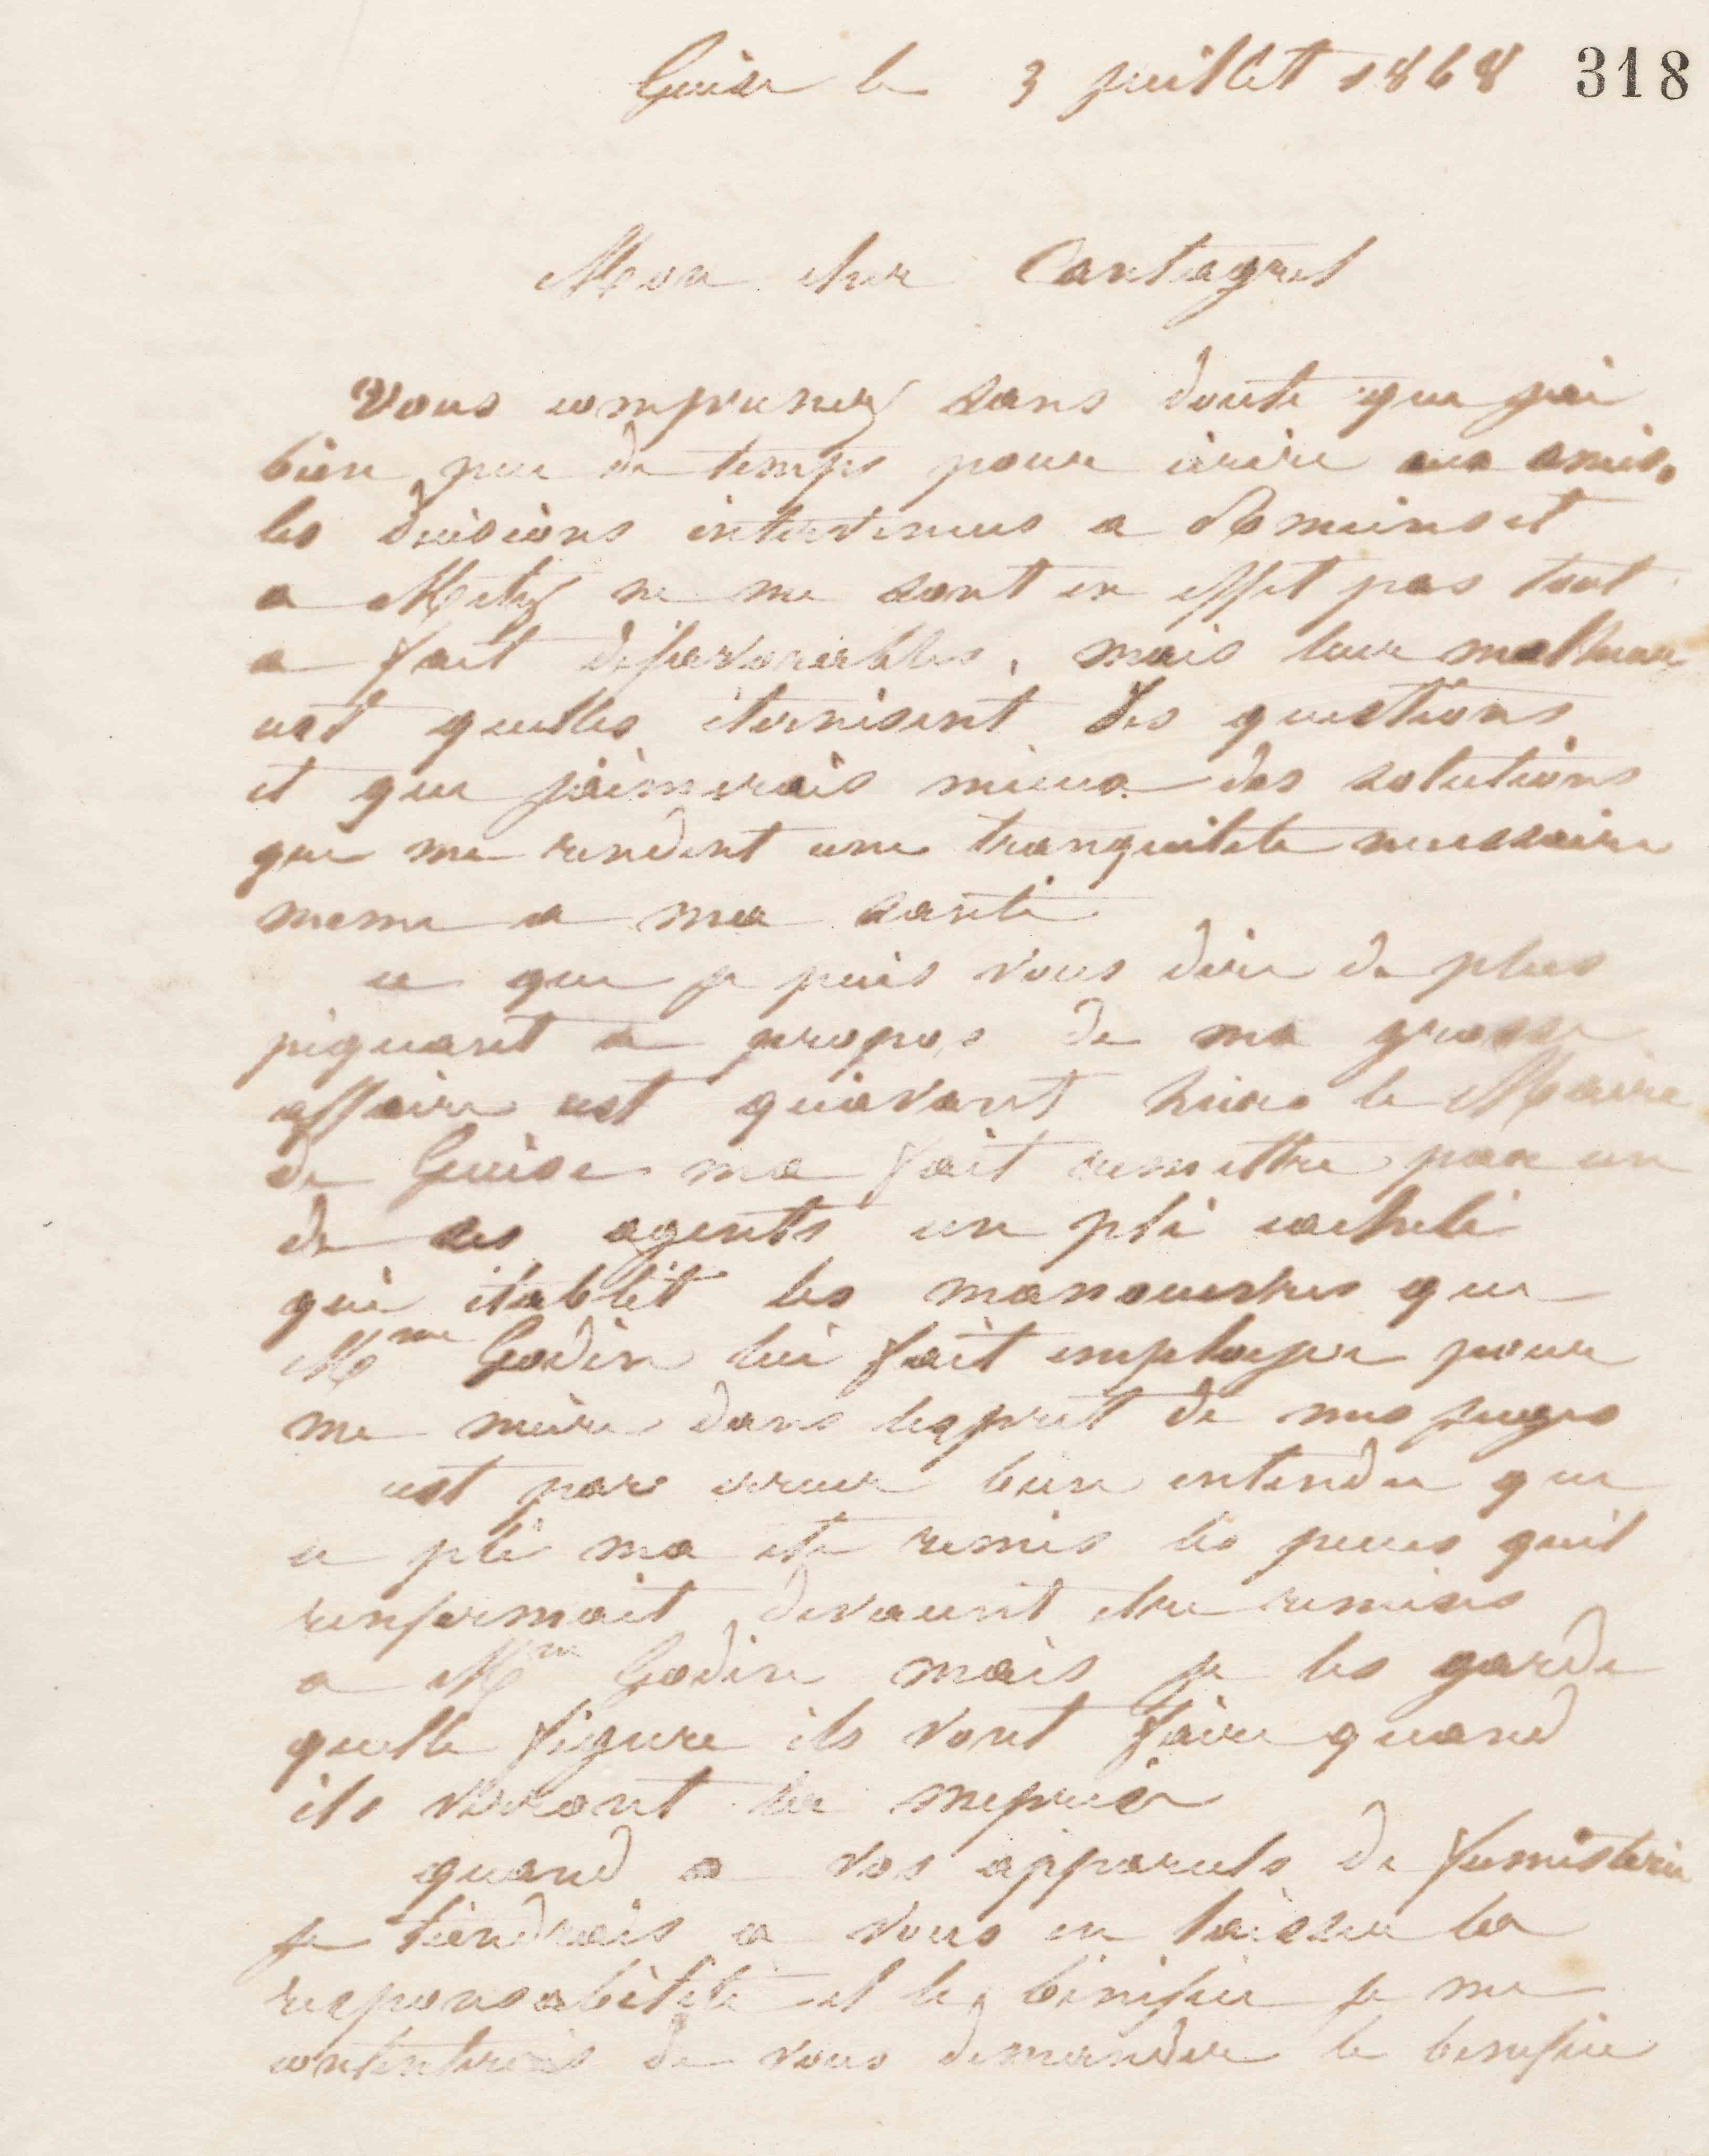 Guise le 3 juillet 1868 318
Mon cher Cantagrel
Vous comprenez sans doute que jai
bien peu de temps pour écrire aux amis.
les décisions intervenues a
a Metz ne me sont en effet pas tout
a fait défavorables, mais leur malheur
est quelles éternisent des questions
et que jaimerais mieux des solutions
qui me rendent une tranquilité necessaire
meme a ma santé
ce que je puis vous dire de plus
piquant a propos de ma grosse
affaire est quavant hier le Maire
de Guise ma fait remettre par un
de ses agents un pli cacheté
qui établit les manoeuvres que
Mme Godin lui fait employer pour
me nuire dans lesprit de mes juges
est par erreur bien entendu que
ce pli ma été remis les pieces quil
renfermait devaient etre remises
a Mme Godin mais je les garde
quelle figure ils vont faire quand
ils verront la meprise
quand a vos appareils de fumisterie
je tiendrais a vous en laisser la
responsabilité et le bénéfice je me
contenterais de vous demander le benefice